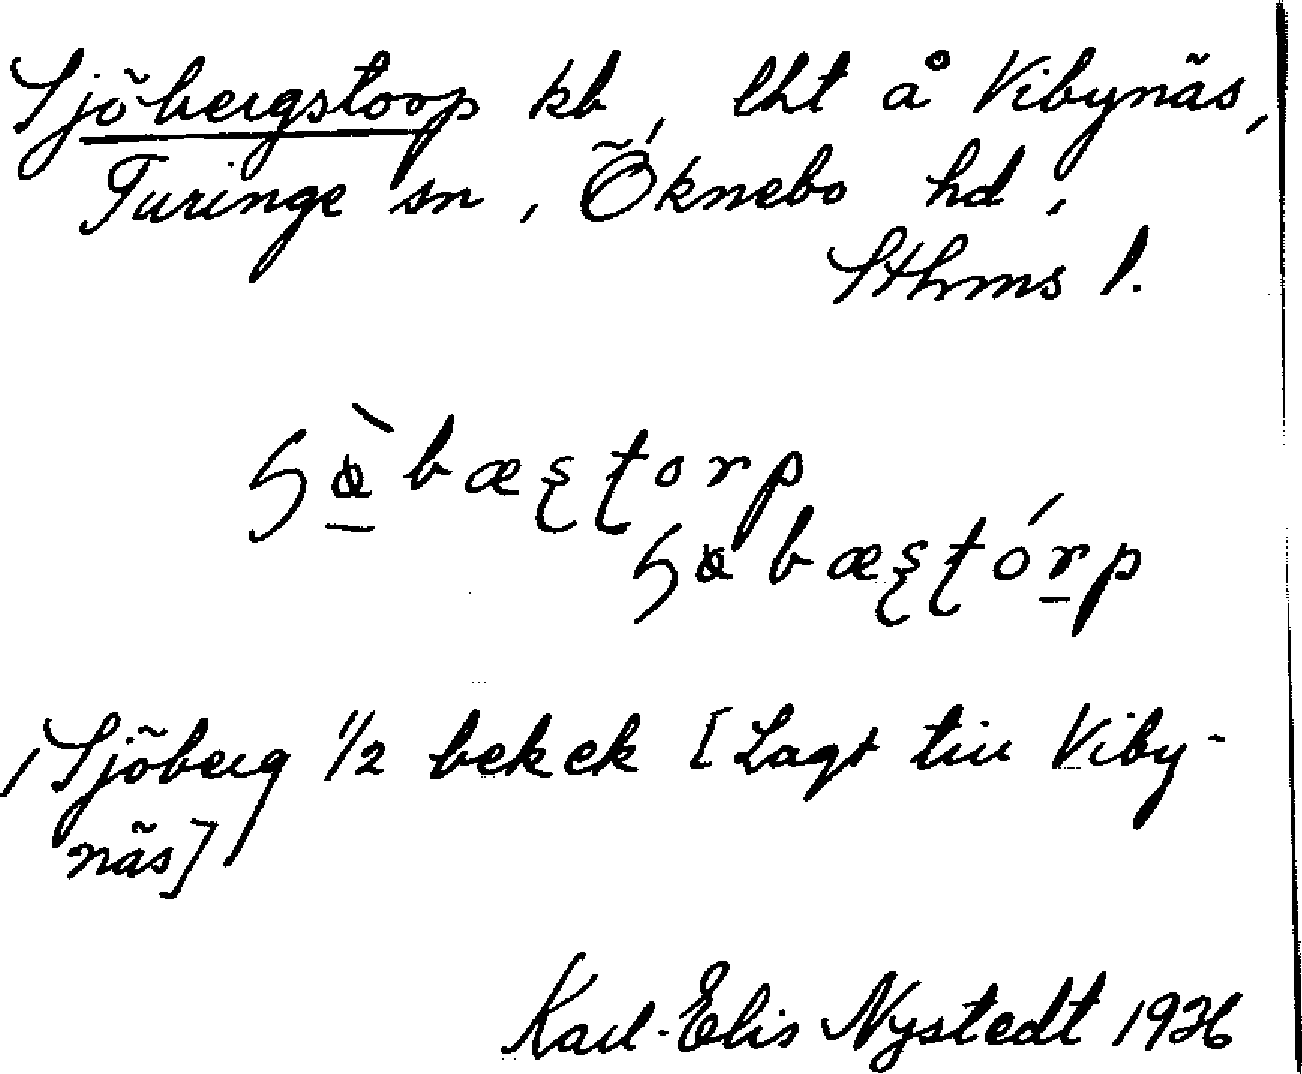 Sjöbergstorp kb, lht å Vibynäs,
Turinge sn, Öknebo hd,
Sthms l.
bæștorp
bæștórp
Sjöberg 1/2 bebek [Lagt till Viby-
näs]
Karl-Elis Nystedt 1936